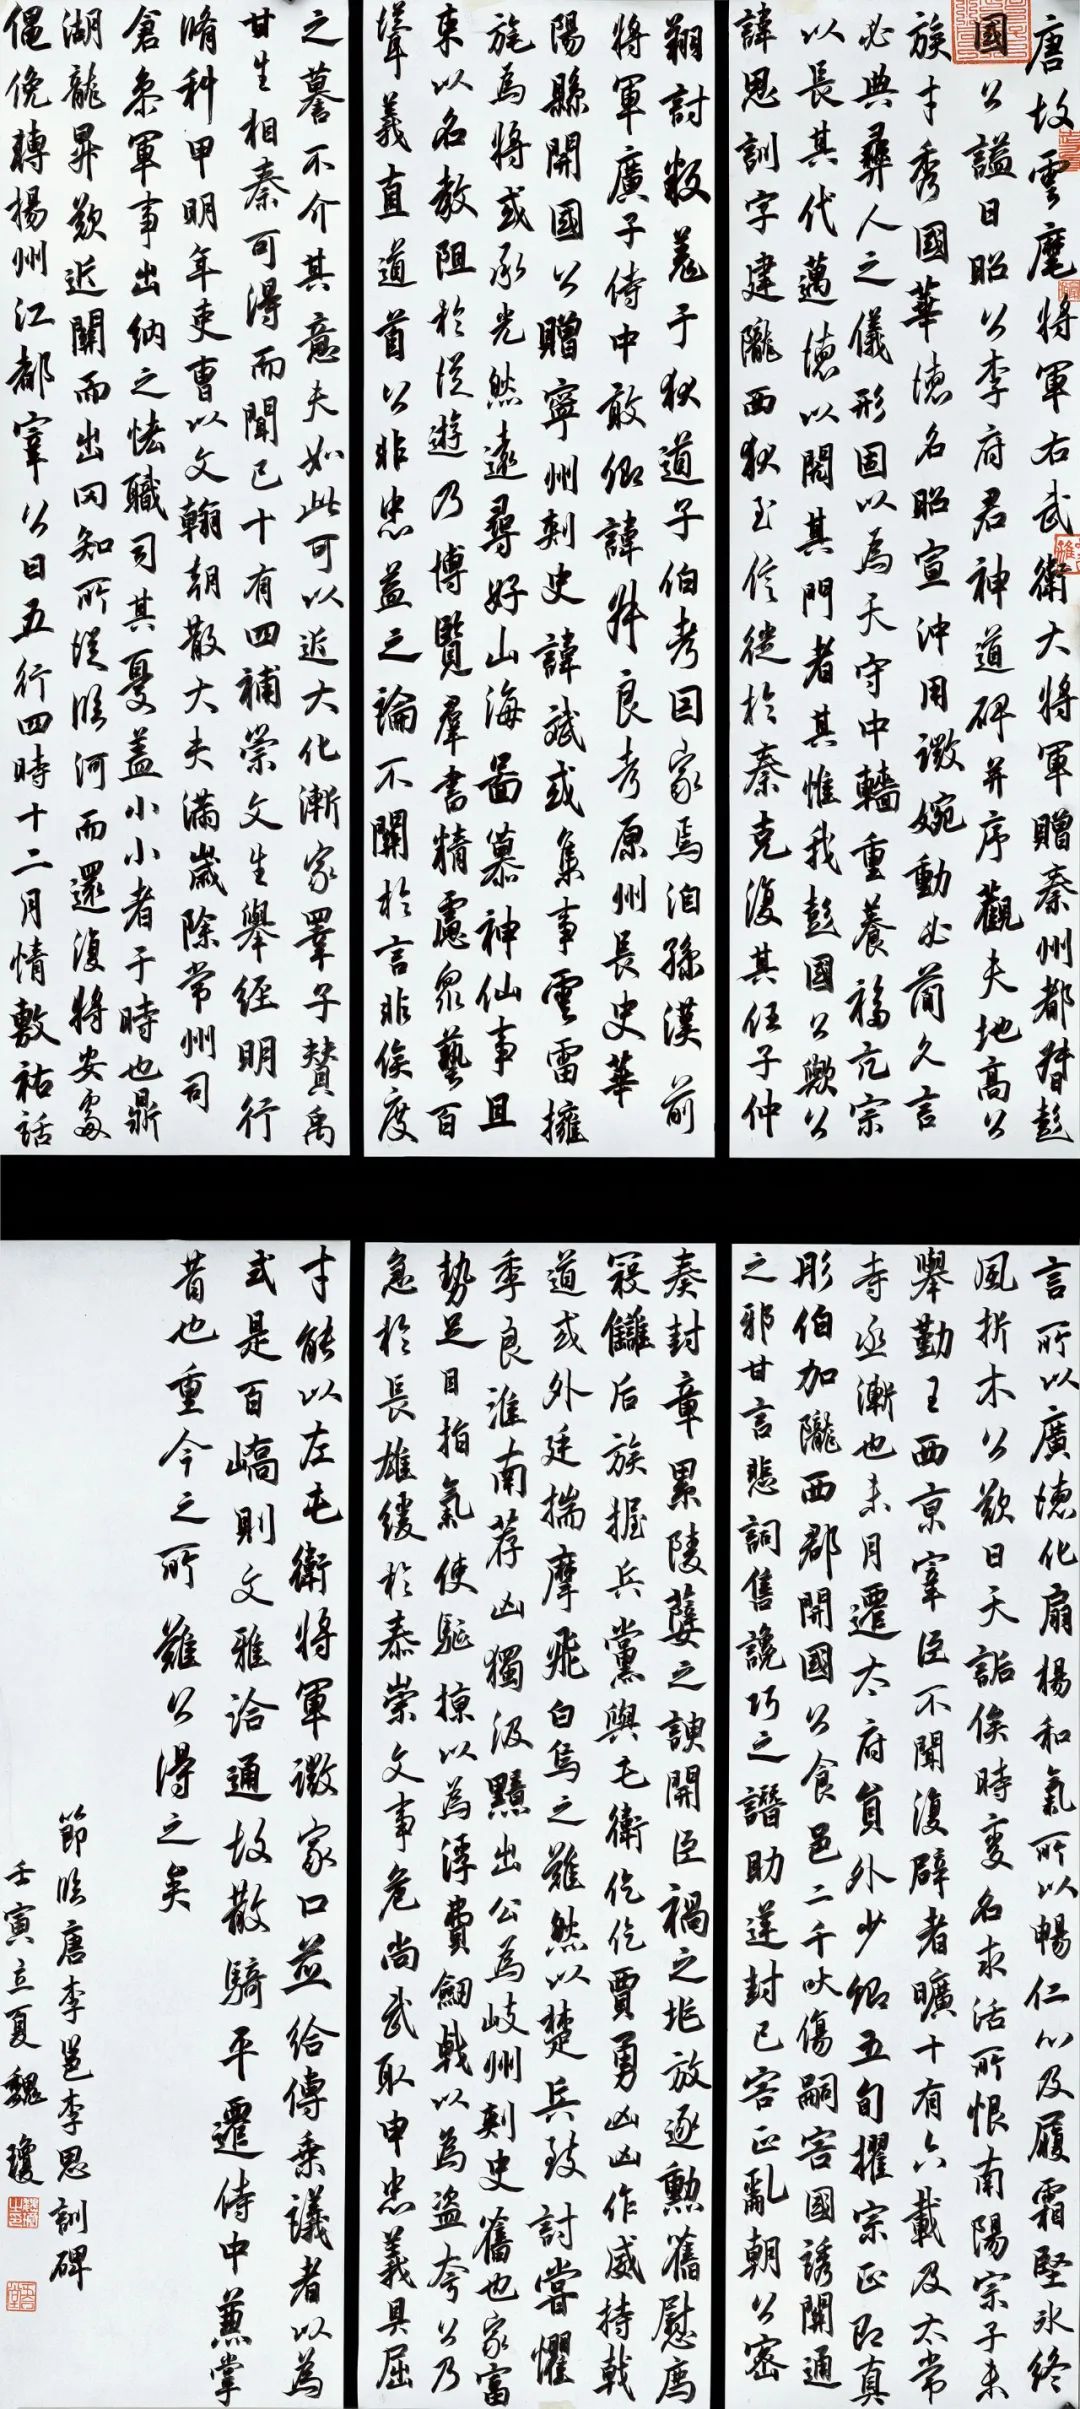 唐故雲麾將軍右武衛大將軍贈秦州都督彭
國公謚曰昭公李府君神道碑并序觀夫地高公
族才秀國華德名昭宣沖用微婉動必簡久言
必典彝人之儀形固以為天守中轖重養福亢宗
以長其代邁德以閎其門者其惟我彭國公歟公
諱思訓字建隴西狄至信徙於秦克復其任子仲
翔討叛羌于狄道子伯考因家焉洎孫漢前
將軍廣子侍中敢卿諱昇良考原州長史華
陽縣開國公贈寧州刺史諱斌或集事雲雷擁
旄為將或承光然遠尋好山海啚慕神仙事且
束以名教阻於從遊乃博覽群書精慮眾藝百
聳義直道首公非忠益之論不關於言非侯度
之謩不介其意夫如此可以近大化漸家羣子贊禹
甘生相秦可得而聞已十有四補崇文生舉經明行
脩科甲明年吏曹以文翰朝散大夫滿歲除常州司
倉參軍事出納之恡職司其憂蓋小小者于時也鼎
湖龍昇歎近關而出罔知所從臨河而還復將安處
僶俛轉揚州江都宰公曰五行四時十二月情敷祐話
言所以廣德化扇揚和氣所以暢仁心及履霜堅冰終
風折木公歎曰天詬俟時變名求活所恨南陽宗子未
舉勤王西京宰臣不聞復辟者曠十有六載及太常
寺丞漸也未月遷太府員外少卿五旬擢宗正即真
彤伯加隴西郡開國公食邑二千吠傷嗣害國誘開通
之邪甘言悲詞售讒巧之譖助逆封已害正亂朝公密
奏封章累陵蘡之諛開臣禍之兆放逐勲舊慰薦
寇讎后族握兵黨與屯衛仡仡賈勇凶凶作威持戟
道或外廷揣摩飛白烏之難然以楚兵致討嘗懼
季良淮南荐凶獨汲黯出公為岐州刺史舊也家富
勢足目指氣使駈掠以為浮費劔戟以為盜夸公乃
急於長雄緩於泰崇文事危尚武取申忠義具屈
才能以左屯衛將軍徵家口並給傳乘議者以為
式是百嶠則文雅洽通故散騎平遷侍中兼掌
昔也重今之所難公得之矣
節臨唐李邕李思訓碑
壬寅立夏魏瓊